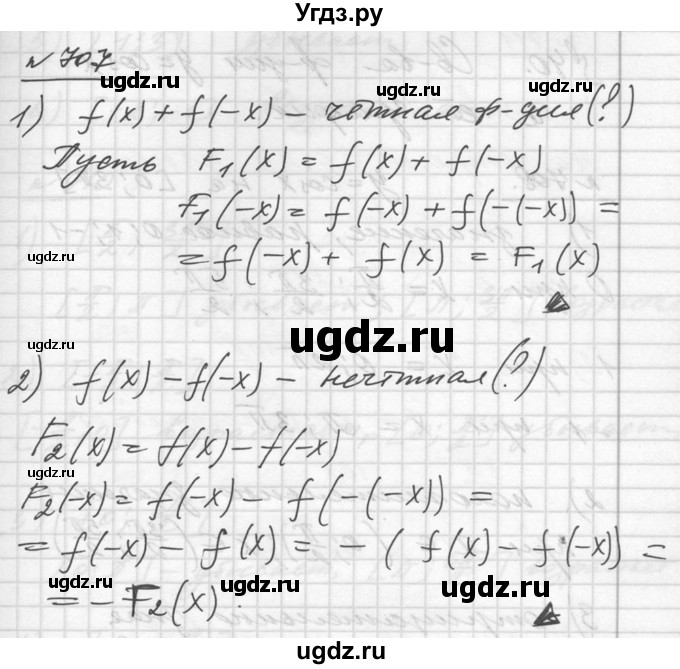 Угдз.ру
№ 707
ugdz.ru ugdz.ru ugdz.ru
1) f(x) + f(-x) - чётная ф-ция(?)
Пусть F₁(x) = f(x) + f(-x)
F₁(-x) = f(-x) + f(-(-x)) =
ugdz.ru
= f(-x) + f(x) = F₁(x)
ugdz.ru
ugdz.ru
2) f(x) - f(-x) - нечётная(?)
F₂(x) = f(x) - f(-x)
ugdz.ru
F₂(-x) = f(-x) - f(-(-x)) =
= f(-x) - f(x) = -(f(x) - f(-x)) =
ugdz.ru ugdz.ru ugdz.ru
= -F₂(x)
ugdz.ru